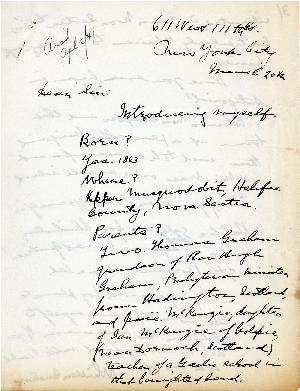 611 West 111th St.
New York City
March 20th
Dear Sir:
Introducing myself.
Born?
Yes. 1863
Where?
Upper Musquodoboit, Halifax
County, Nova Scotia.
Parents?
Two. Thomas Graham
grandson of Rev Hugh
Graham, Presbyterian minister
from Hadington, Scotland,
and Jessie McKenzie, daughter
of Ian McKenzie of Golspie,
(near Dornoch, Scotland)
teacher of a Gaelic school in
that benighted land.